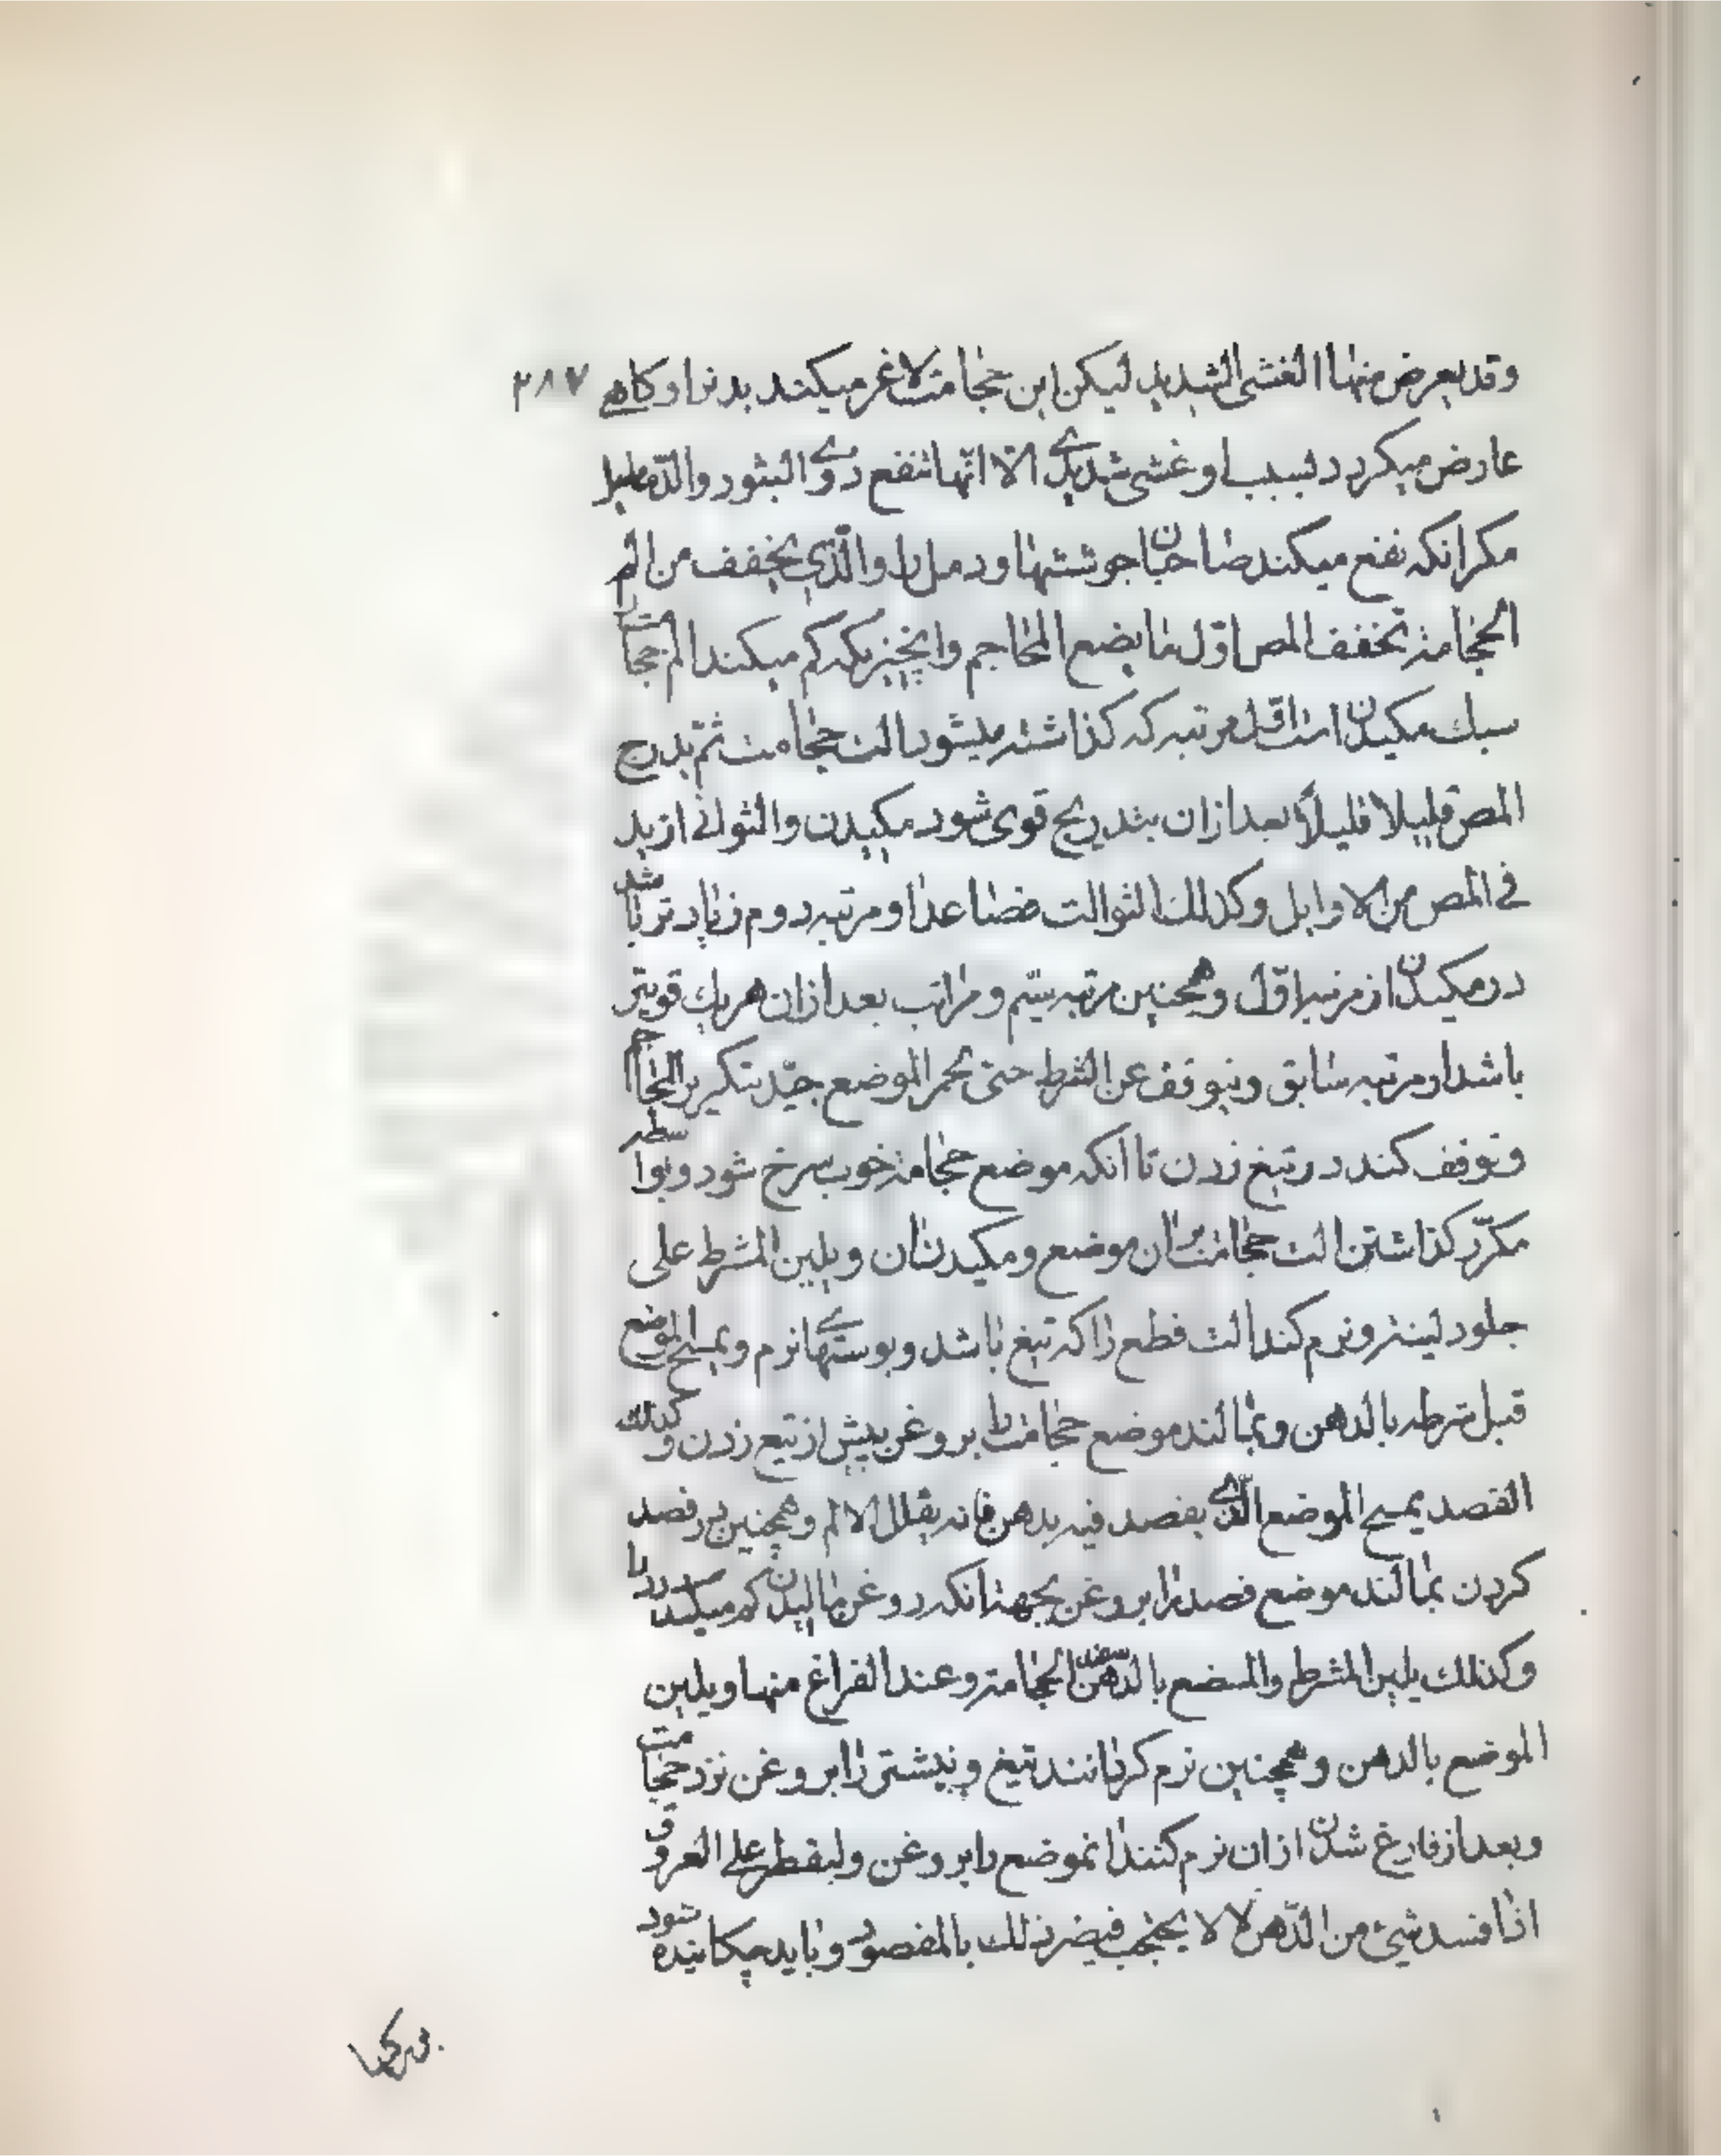 وقد يعرض منها الغشى الشديد ليكن اين حجامت لاغر ميكند بدنرا وكاهے ٢٨٧
عارض ميكردد بسبب او غشى شديدے الا انها تنفع ذوے البثور والدماميل
مكر انكه نفع ميكند صاحبان جوششها ودمل را والذي يخفف من الم
الحجامة تخفف المص اول ما يضع المحاجم وانچيزيكه كم ميكند الم حجامت
سبك مكيدن است اول مرتبه كه كذاشته ميشود الت حجامت ثم يدرج
المص قليلا قليلا بعد ازان بتدريج قوى شود مكيدن والثوانے ازيد
فے المص من الاوايل وكذلك الثوالث فصاعدا ومرتبه دوم زيادتر باشد
در مكيدن از مرتبه اول وهمچنين مرتبه سيم ومراتب بعد ازان هر يك قويتر
باشد از مرتبه سابق ويتوقف عن الشرط حتى يحمر الموضع جيد بتكرير المحاجم
وتوقف كند در تيغ زدن تا انكه موضع حجامة خوب سرخ شود وبواسطه
مكرر كذاشتن الت حجامت بران موضع ومكيدن ان ويلين المشرط على
جلود لينة ونرم كند الت قطع را كه تيغ باشد وپوستهاے نرم ويمسح الموضع
قبل شرطه بالدهن وبمالند موضع حجامت را بروغن پيش از تيغ زدن وكذلك
الفصد يمسح الموضع الذے يفصد فيه بدهن فانه يقلل الالم وهمچنين در فصد
كردن بمالند موضع فصد را بروغن بجهة انكه روغن ماليدن كم ميكند درد را
وكذلك يلين المشرط والمبضع بالدهن عند الحجامة وعند الفراغ منها ويلين
الموضع بالدهن وهمچنين نرم كردانند تيغ ونيشتر را بروغن نزد حجامت
وبعد از فارغ شدن ازان نرم كنند انموضع را بروغن وليقطر على العروق
اذا فسد شئ من الدهن لا لا يحتجب فيضر ذلك بالمفصود وبايد چكانيده شود